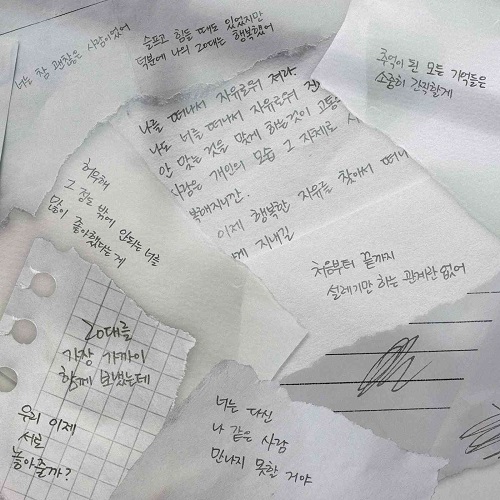 너는 참 괜찮은 사람이었어
슬프고 힘들 때도 있었지만
덕분에 나의 20대는 행복했어
추억이 된 모든 기억들은
소중히 간직할게
나를 떠나서 자유로워 져라.
나도 너를 떠나서 자유로워
안 맞는 것을 맞게 하는것이 고통
사람은 개인의 모습 그 자체로
복해지니깐.
이제 행복한 자유를 찾아서 떠나
게 지내길
허무해
그 정도 밖에 안되는 너를
많이 좋아했다는 게
처음부터 끝까지
설레기만 하는 관계란 없어
20대를
가장 가까이
함께 보냈는데
우리 이제
서로
놓아줄까?
너는 다신
나 같은 사람
만나지 못할 거야